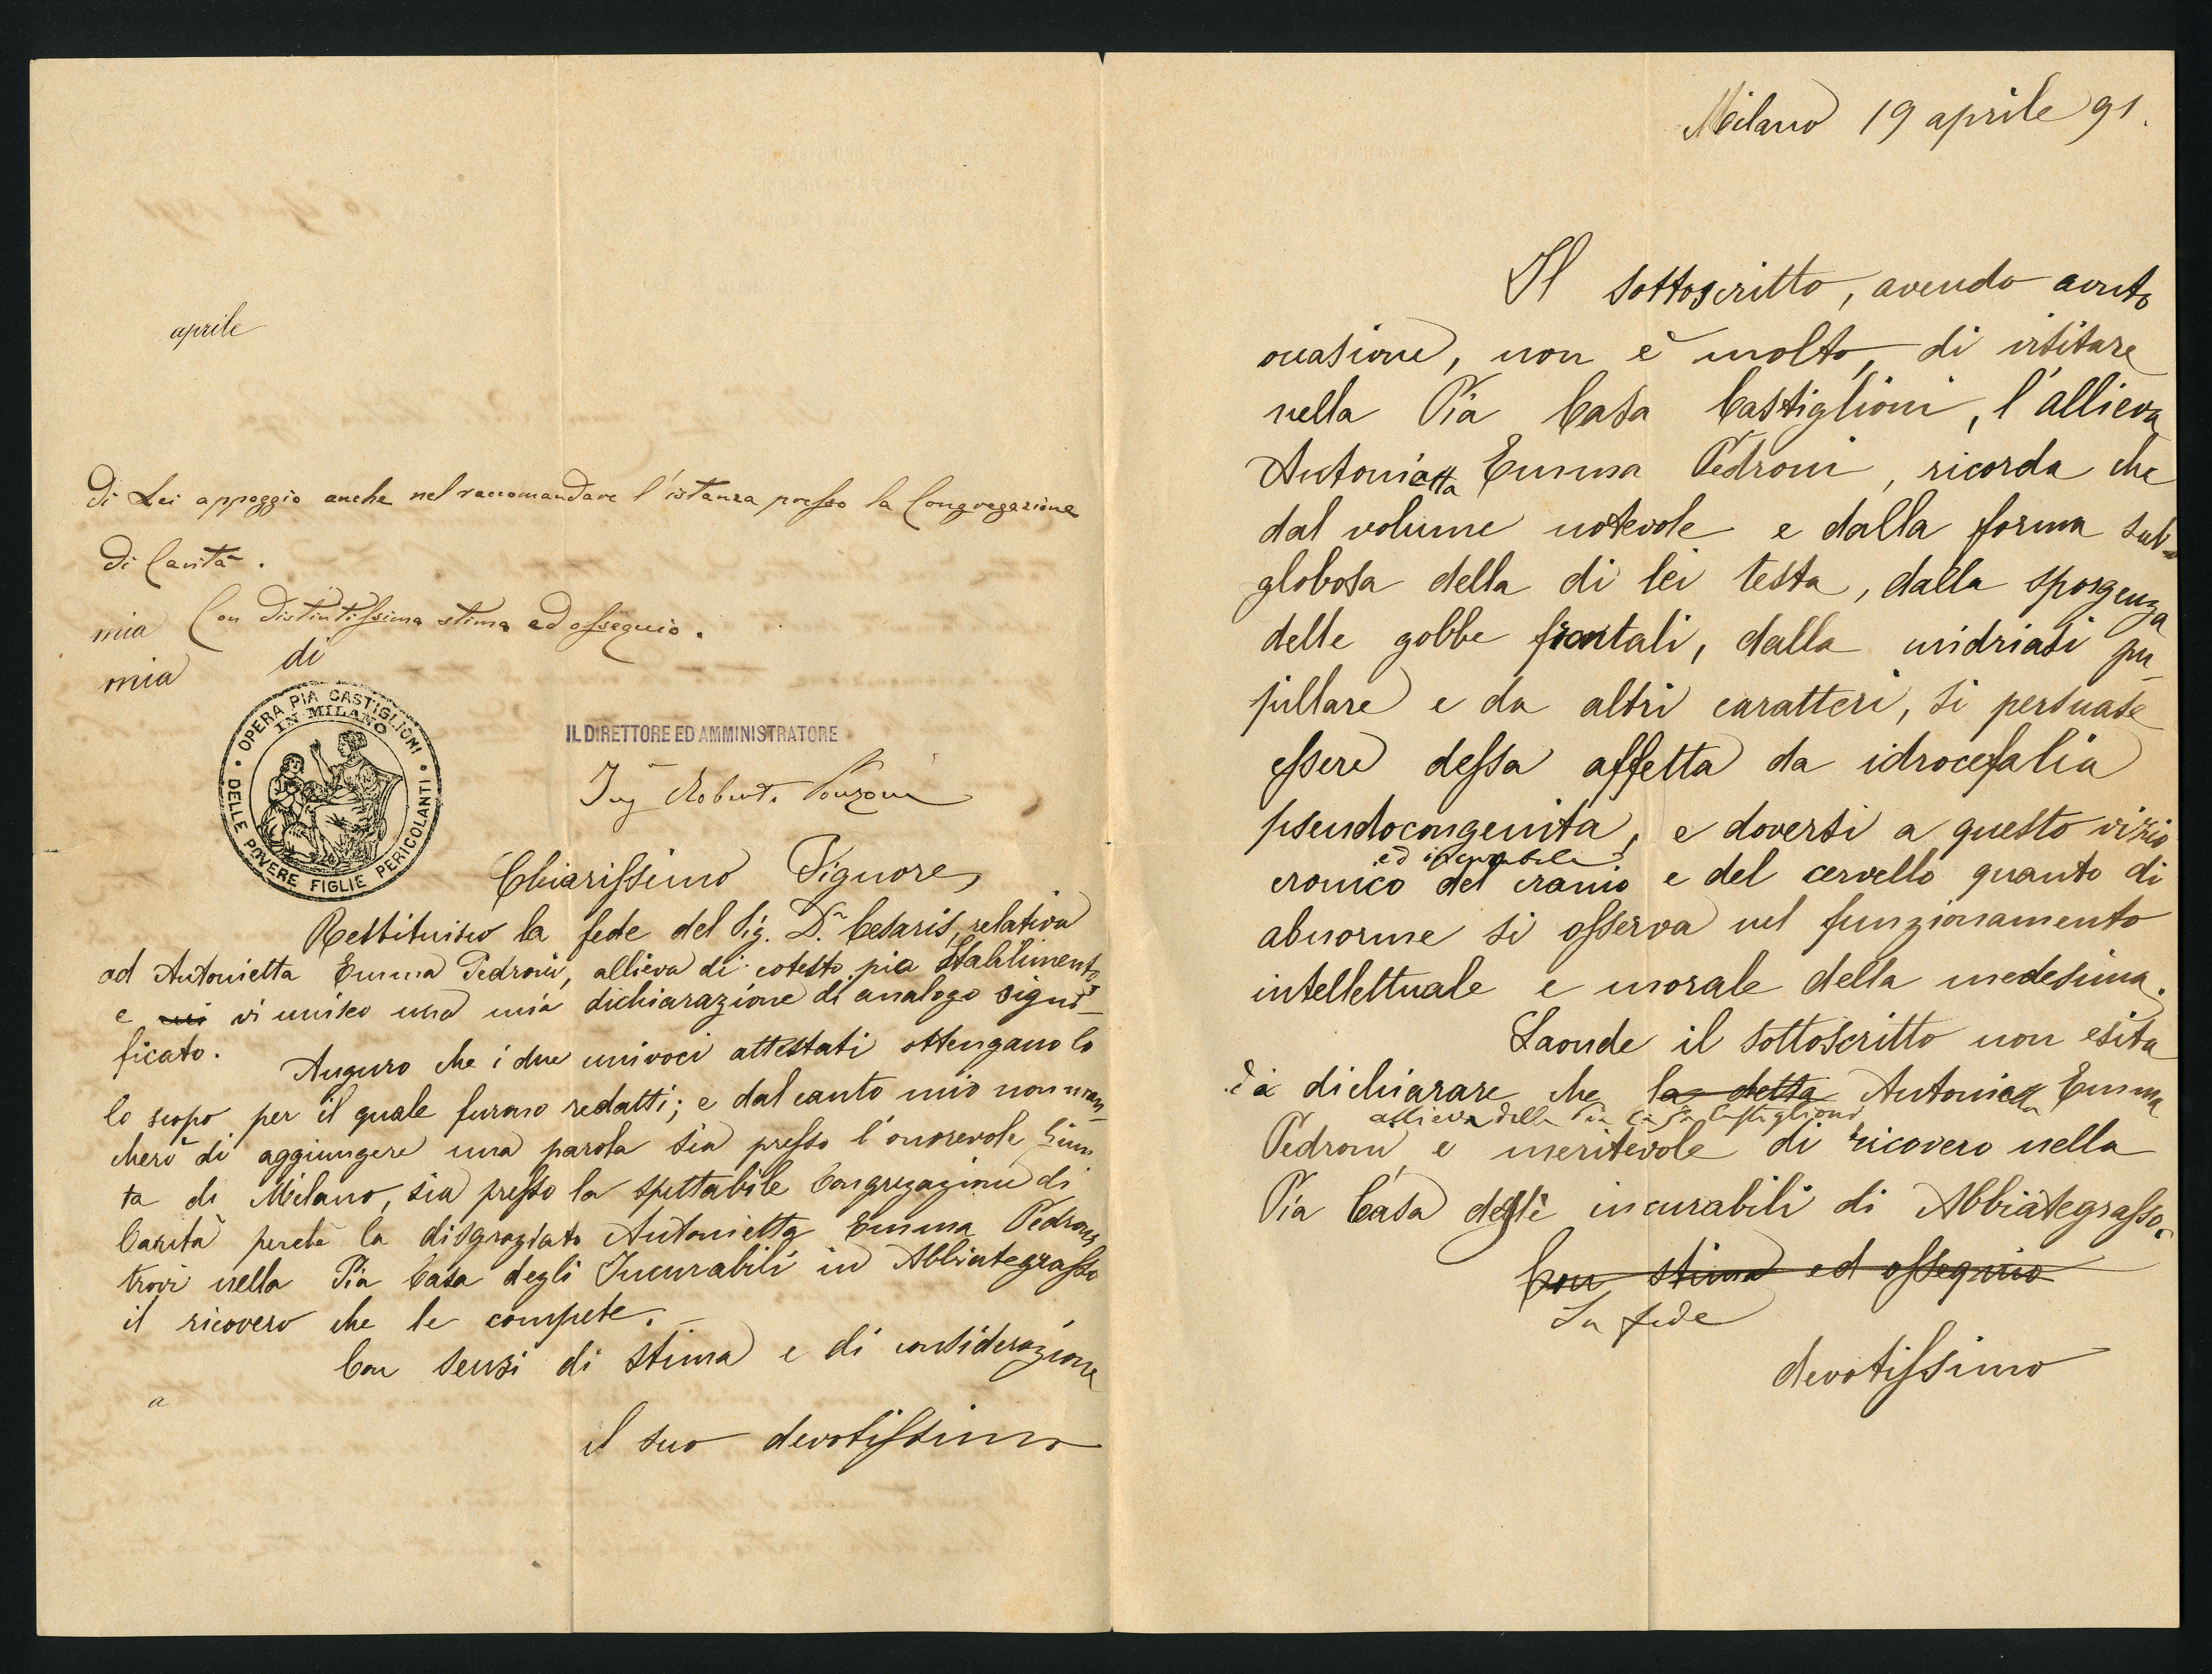 aprile
di Lei appoggio anche nel raccomandare l'istanza presso la Congregazione
di Carità.
mia Con distintissima stima ed ossequio.
mia di
OPERA PIA CASTIGLIONI
IN MILANO
DELLE POVERE FIGLIE PERICOLANTI
IL DIRETTORE ED AMMINISTRATORE
Ing
Chiarissimo Signore,
Restituisco la fede del Sig. Dr. Cesaris, relativa
ad Antonietta Emma Pedroni, allieva di cotesto pia Stabilimento,
e vi unisco una mia dichiarazione di analogo signi-
ficato.
Auguro che i due univoci attestati ottengano lo
lo scopo per il quale furono redatti; e dal canto mio non man-
cherò di aggiungere una parola sia presso l'onorevole Giun
ta di Milano, sia presso la spettabile Congregazione di
Carità perchè la disgraziata Antonietta Emma Pedroni
trovi nella Pia Casa degli Incurabili in Abbiategrasso
il ricovero che le compete.
Con sensi di stima e di considerazione
a
il suo devotissimo
Milano 19 aprile 91.
Il sottoscritto, avendo avuto
occasione, non è molto, di visitare
nella Pia Casa Castiglioni, l'allieva
Antonietta Emma Pedroni, ricorda che
dal volume notevole e dalla forma sub-
globosa della di lei testa, dalla sporgenza
delle gobbe frontali, dalla midriasi pu-
pillare e da altri caratteri, si persuase
essere dessa affetta da idrocefalia
pseudocongenita, e doversi a questo vizio
ed incurabile
cronico del cranio e del cervello quanto di
abnorme si osserva nel funzionamento
intellettuale e morale della medesima.
Laonde il sottoscritto non esita
a dichiarare che la detta Antonietta Emma
allieva della Pia Casa Castiglioni
Pedroni, è meritevole di ricovero nella
Pia Casa degli incurabili di Abbiategrasso.
Con stima ed ossequio
In fede
devotissimo